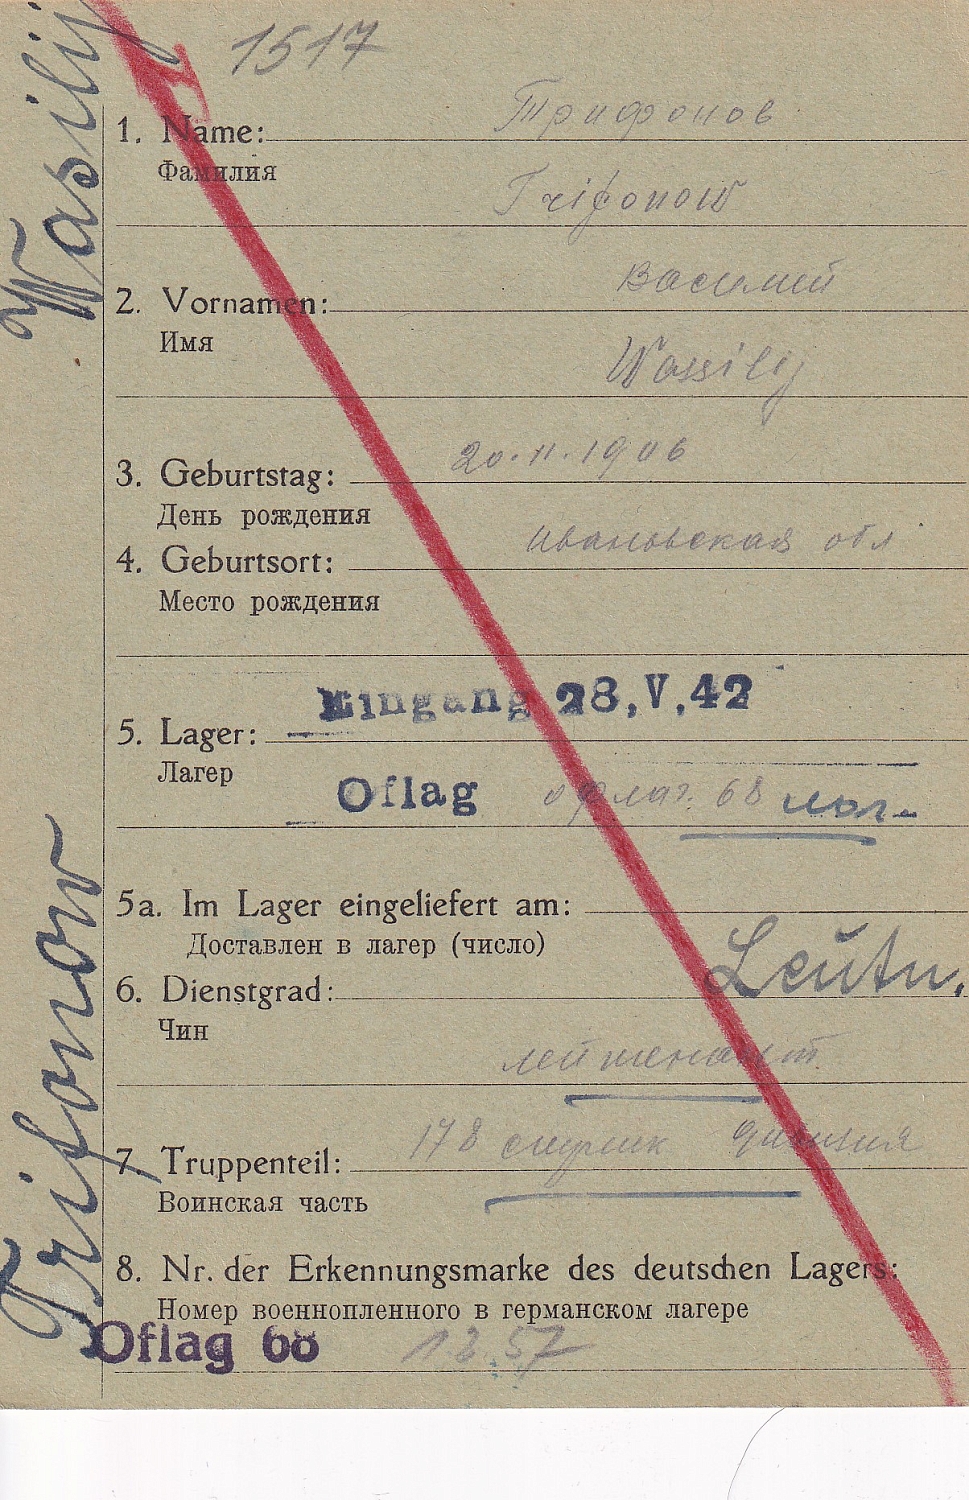 1517
1. Name: Трифонов
Фамилия
Trifonow
2. Vornamen: Василий
Имя
Wassilij
3. Geburtstag: 20.11.1906
День рождения
4. Geburtsort: Ивановская обл
Место рождения
Eingang 28.V.42
5. Lager:
Лагер
Oflag офлаг. 68
5a. Im Lager eingeliefert am:
Доставлен в лагер (число)
6. Dienstgrad: Leutn.
Чин
лейтенант
7. Truppenteil: 178 стрелк дивизия
Воинская часть
8. Nr. der Erkennungsmarke des deutschen Lagers:
Номер военнопленного в германском лагере
Oflag 68 1357
Trifonow Wasilij